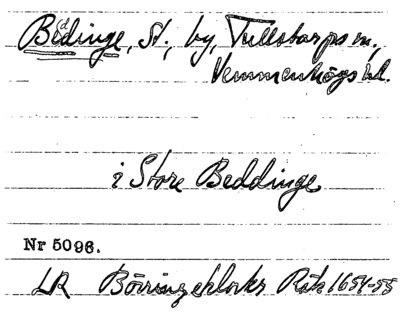 Beddinge, St., by, Tullstorps sn.,
Vemmenhögs hd.
i Store Beddinge
Nr 5096.
LR Börringeklosters Räk 1654-55